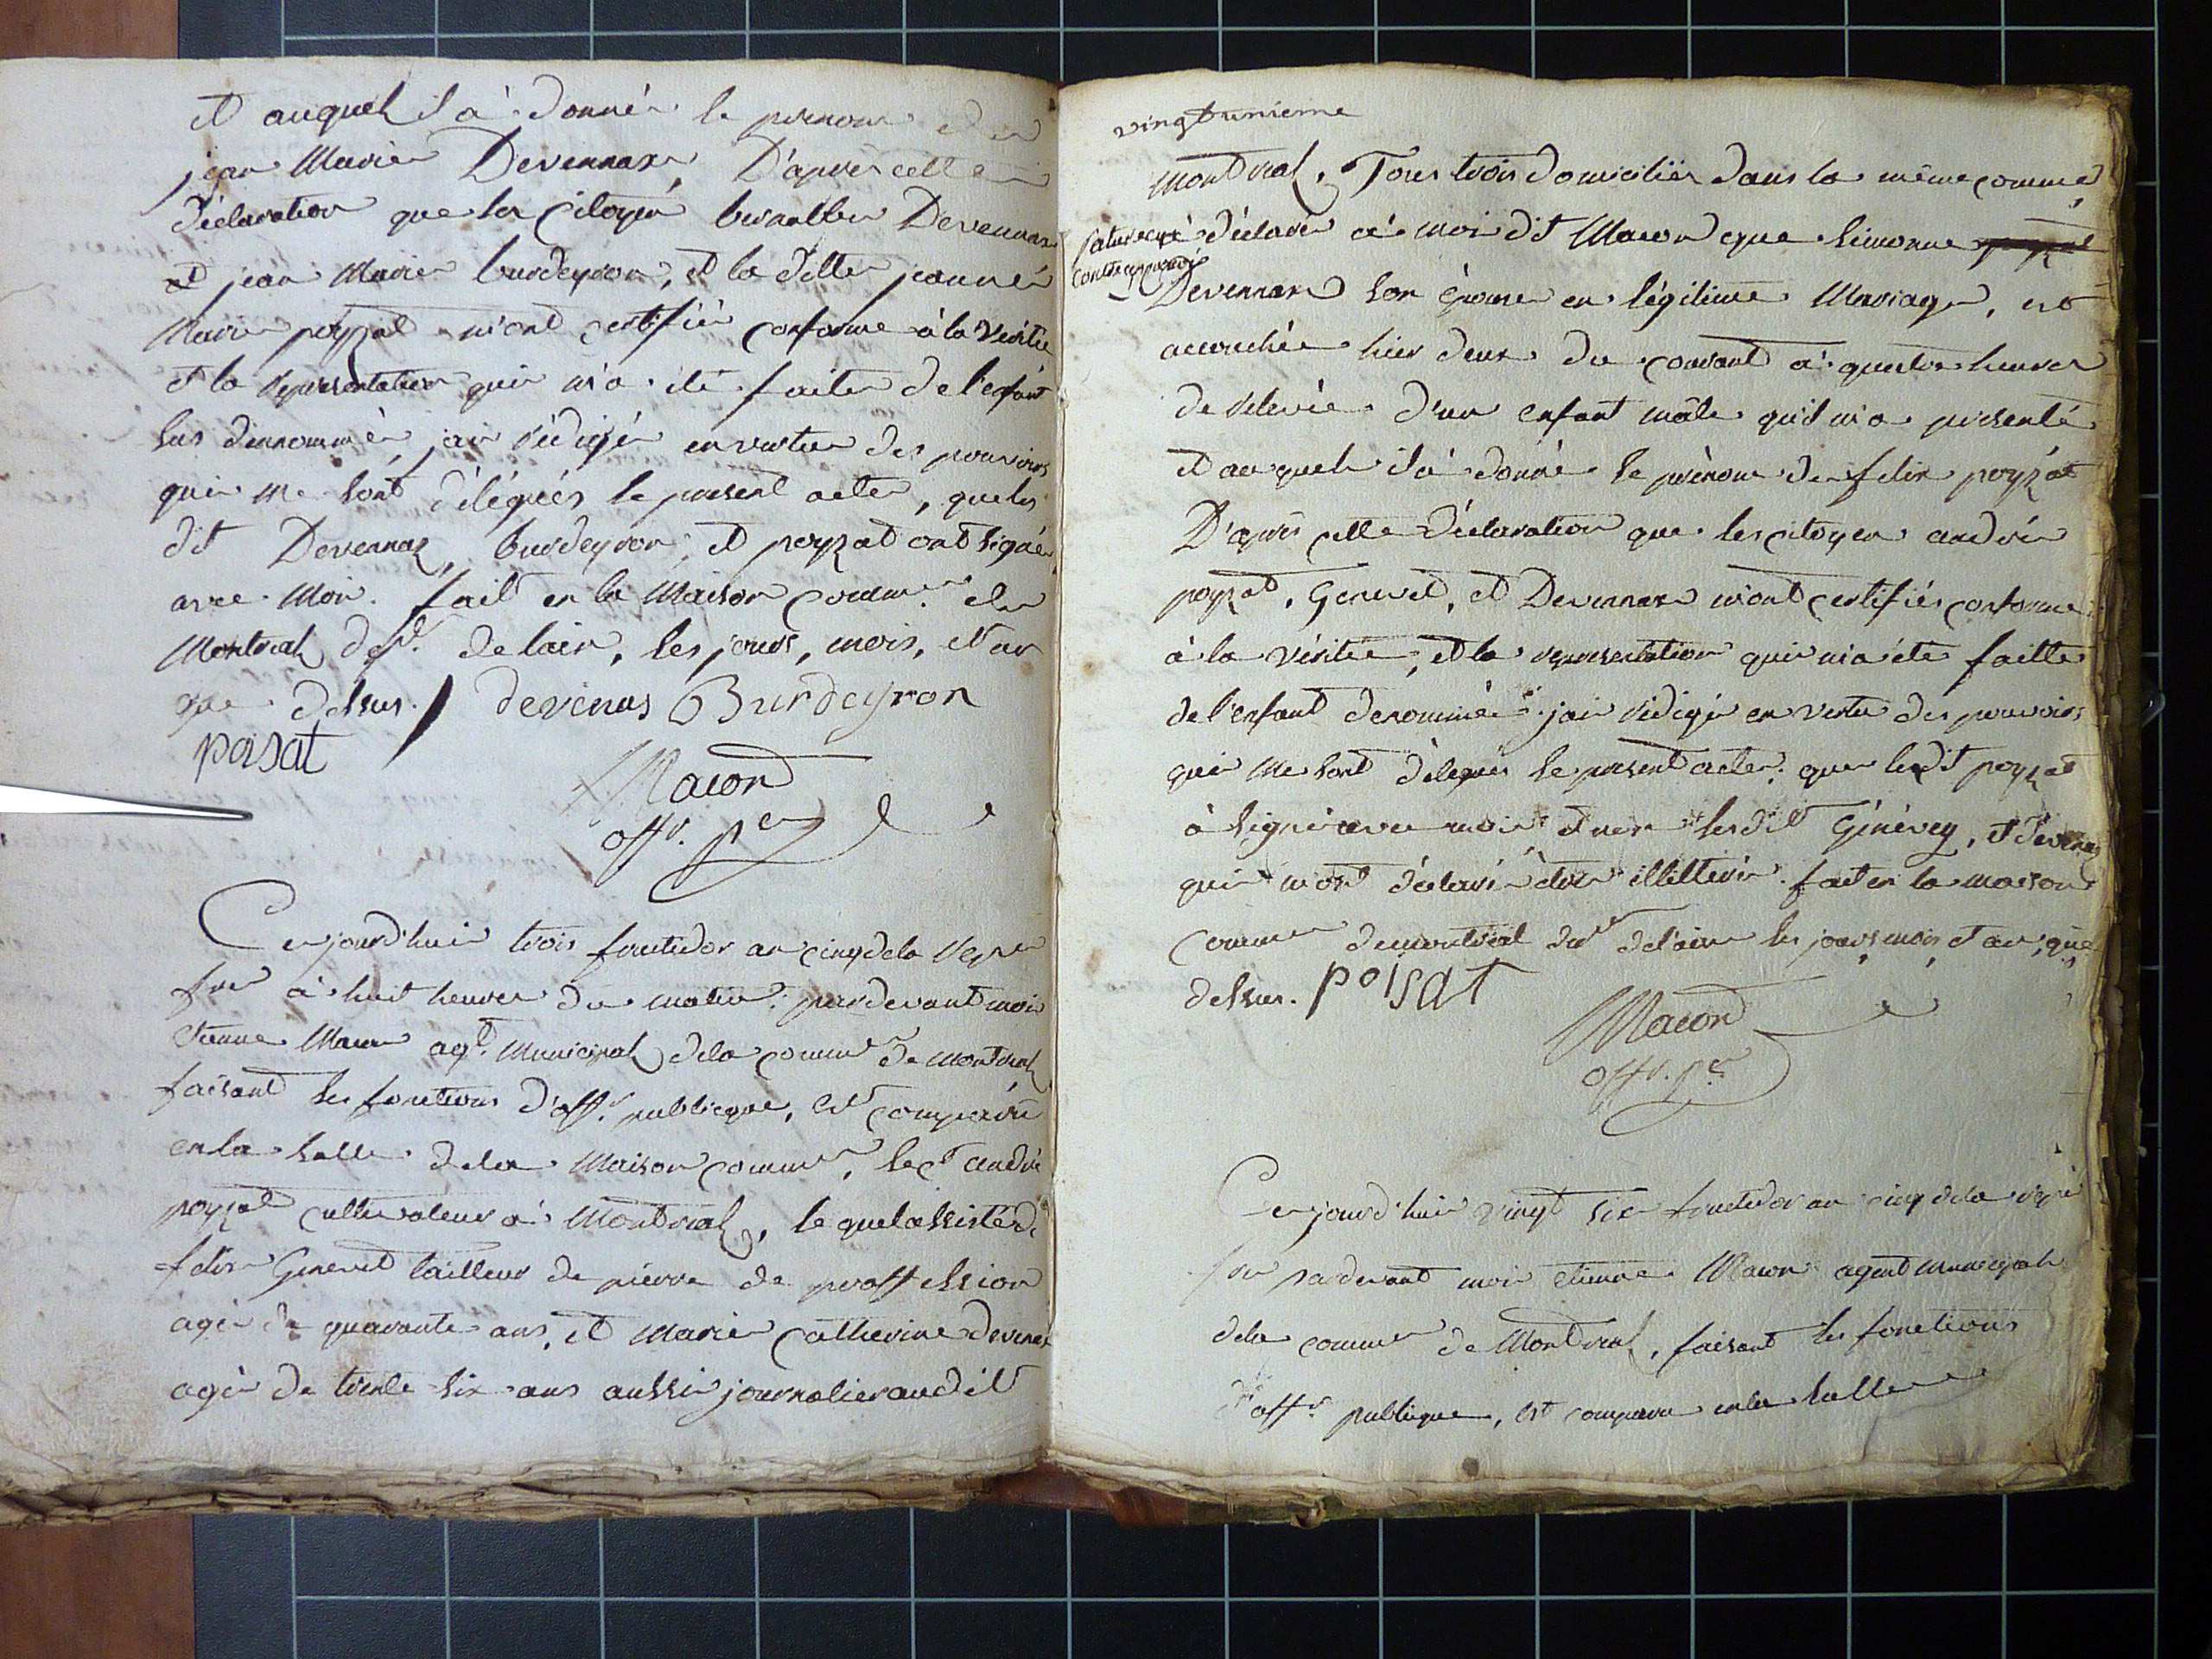 et auquel il à donné le prenom de
jean Marie Devennaz, D'après cette
déclaration que les citoyen Devennaz
et jean Marie burdeyron, et la ditte jeanne
Marie poyzat m'ont certifié conforme à la vérité
et la representation qui m'a été faite de l'enfant
sus dennommé, jai rédigé en vertu des pouvoirs
qui me sont délégués le present acte, que les
dit Devennaz, burdeyron, et poyzat ont signé
avec moi. fait en la Maison comm.ne de
Montreal dep.t de lain, les jours, mois, et an
que dessus. / devenas Burdeyron
poisat
Macon
off.r p.er
Ce jourd'hui trois fructidor an cinq de la repu
fse à huit heures du matin, pardevant moi
Etienne Macon ag.t municipal de la comm.ne de Montreal
faisant les fonctions d'off.r publicque, est comparu
en la salle de la Maison comm.ne, le c.t andré
poyzat cultivateur à Montreal, le quel assisté de
felix Genevet tailleur de pierre de proffession
agé de quarante ans, et Marie Catherine devenaz
agé de trente six ans aussi journalier audit
vingtunieme
Montreal, Tous trois domiciliés dans la même comm.e
à déclaré à moi dit Macon que simonne
Devennaz son épouse en légitime Mariage, est
accouchée hier deux du courant à quatre heures
de relevée d'un enfant mâle qu'il m'a presenté
et auquel il à donné le prénom de felix poyzat
D'après cette déclaration que les citoyen andré
poyzat, Genevet, et Devennaz m'ont certifié conforme
à la vérité, et la representation qui m'a été faitte
de l'enfant denommé, jai rédigé en vertu des pouvoirs
qui me sont délegués le present acte, que ledit poyzat
à signé avec moi et non lesdit Génévey, et devenaz
qui m'ont déclaré être illitteré. fait en la maison
comm.ne de montréal de.t de l'ain les jours mois et an que
dessus. poisat
Macon
off.r p.er
Ce jourd'hui vingt six fructidor an cinq de la repu
fse pardevant moi etienne Macon agent municipal
de la comm.ne de Montreal, faisant les fonctions
d'off.r publique, est comparu en la salle